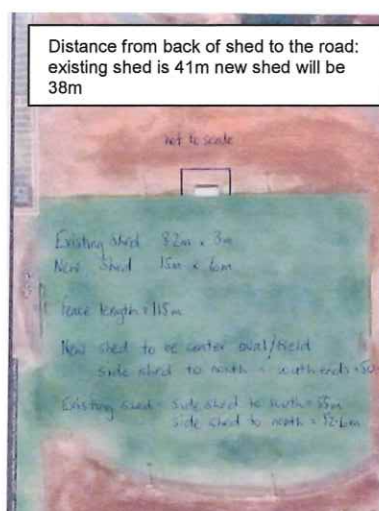 Distance from back of shed to the road:
existing shed is 41m new shed will be
38m
not to scale
Existing shed 8.2m x 3m
New Shed 15m x 6m
Fence length = 115m
New shed to be center oval/field
side shed to north = south ends = 50
Existing shed - side shed to = 55m
side shed to north = 52.6m